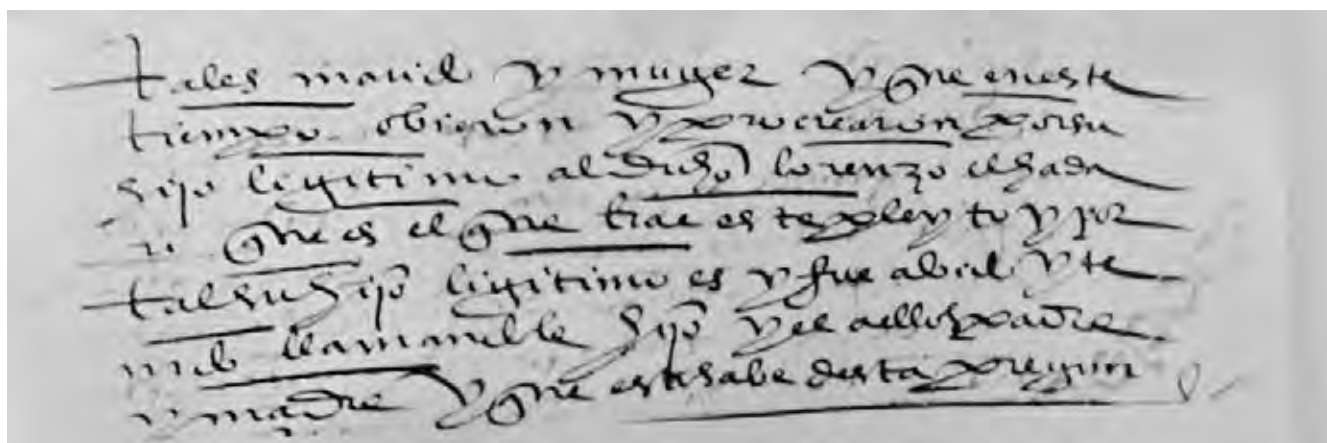 tales marid y muger y que eneste
tiempo obieron y procrearon por su
hijo legitimo al dicho lorenzo elhada
ro que es el que trae este pleyto y por
tal su hijo ligitimo es y fue abid y te
nid llamandle hijo y el a ellos padre
y madre y que esto sabe desta pregun